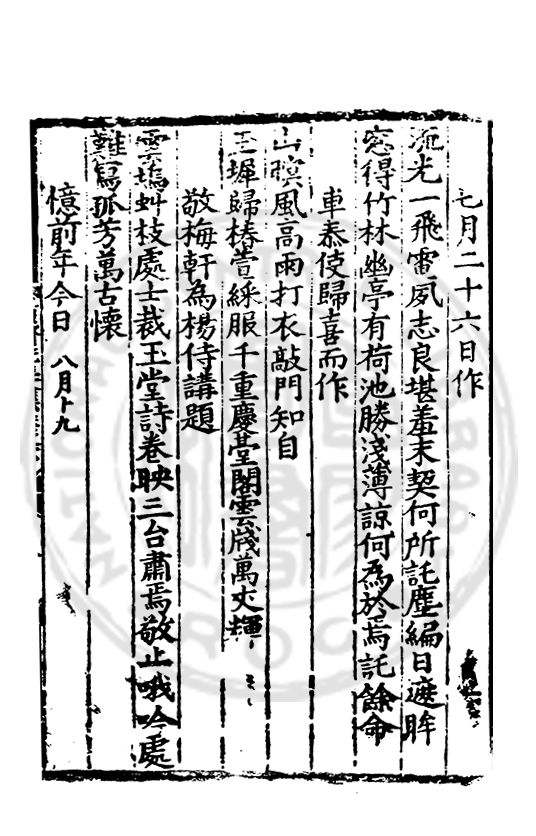 七月二十六日作
流光一飛電夙志良堪羞末契何所託塵編日遮眸
窓得竹林幽亭有荷池勝淺薄諒何為於焉託餘命
車泰使歸喜而作
山暝風高雨打衣敲門知自
玉墀歸椿萱綵服千重慶臺閣雲牋萬丈輝
敬梅軒為楊侍講題
雲塢虯枝處士裁玉堂詩卷映三台肅焉敬止哦吟處
難寫孤芳萬古懷
憶前年今日 八月十九